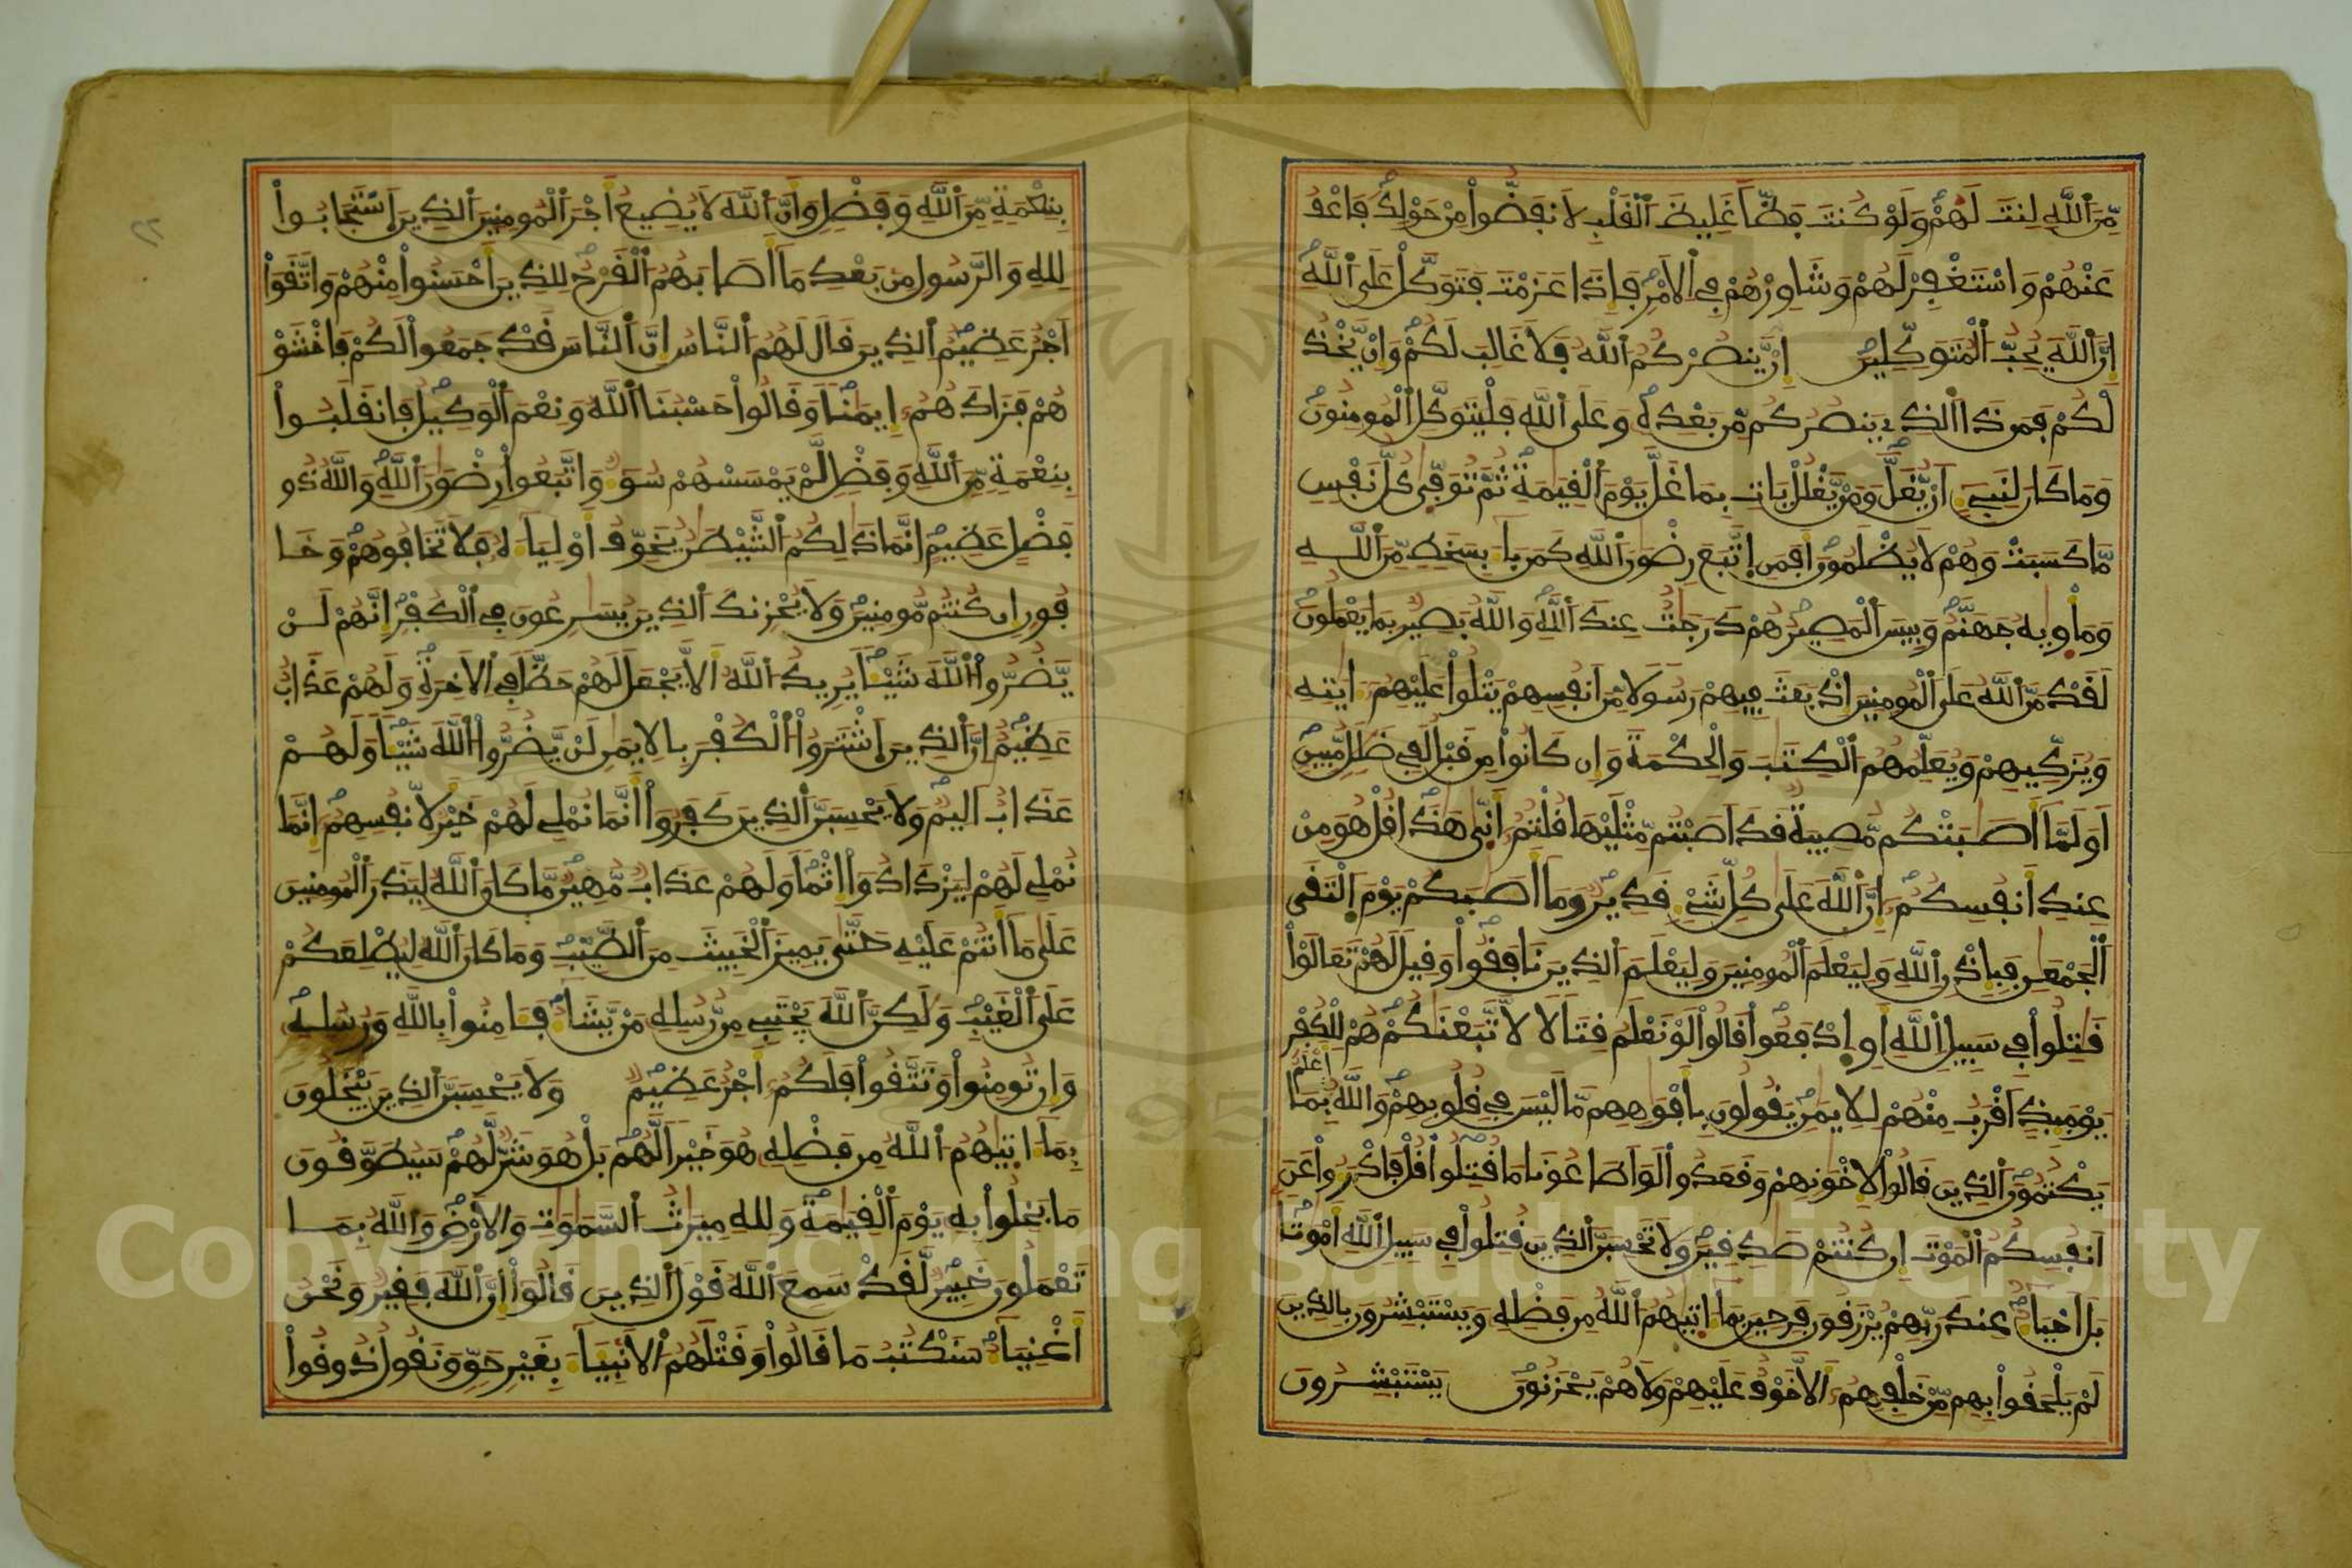 مِّنَ ٱللَّهِ لِنتَ لَهُمْ وَلَوْ كُنتَ فَظّاً غَلِيظَ ٱلْقَلْبِ لَانفَضُّواْ مِنْ حَوْلِكَ فَاعْفُ
عَنْهُمْ وَاسْتَغْفِرْ لَهُمْ وَشَاوِرْهُمْ فِي ٱلَامْرِ فَإِذَا عَزَمْتَ فَتَوَكَّلْ عَلَى ٱللَّهِ
إِنَّ ٱللَّهَ يُحِبُّ ٱلْمُتَوَكِّلِينَ إِنْ يَّنصُرْكُمُ ٱللَّهُ فَلَا غَالِبَ لَكُمْ وَإِنْ يَّخْذُ
لْكُمْ فَمَن ذَا ٱلذِي يَنصُرُكُم مِّن بَعْدِهِ وَعَلَى ٱللَّهِ فَلْيَتَوَكَّلِ ٱلْمُومِنُونَ
وَمَا كَانَ لِنَبِيٍٓءٍ اَنْ يُّغَلَّ وَمَنْ يَّغْلُلْ يَاتِ بِمَا غَلَّ يَوْمَ ٱلْقِيَٰمَةِ ثُمَّ تُوَفّٰى كُلُّ نَفْسٍ
مَّا كَسَبَتْ وَهُمْ لَا يُظْلَمُونَ أَفَمَنِ اِتَّبَعَ رِضْوَٰنَ ٱللَّهِ كَمَن بَآءَ بِسَخَطٍ مِّنَ ٱللَّهِ
وَمَأْوٰيهُ جَهَنَّمُ وَبِيسَ ٱلْمَصِيرُ هُمْ دَرَجَٰتٌ عِندَ ٱللَّهِ وَاللَّهُ بَصِيرٌ بِمَا يَعْمَلُونَ
لَقَدْ مَنَّ ٱللَّهُ عَلَى ٱلْمُومِنِينَ إِذْ بَعَثَ فِيهِمْ رَسُولًا مِّنَ اَنفُسِهِمْ يَتْلُواْ عَلَيْهِمُۥٓ ءَايَٰتِهِ
وَيُزَكِّيهِمْ وَيُعَلِّمُهُمُ ٱلْكِتَٰبَ وَالْحِكْمَةَ وَإِن كَانُواْ مِن قَبْلُ لَفِي ضَلَٰلٍ مُّبِينٍ
اَوَلَمَّآ أَصَٰبَتْكُم مُّصِيبَةٌ قَدَ اَصَبْتُم مِّثْلَيْهَا قُلْتُمُۥٓ أَنّٰى هَٰذَا قُلْ هُوَ مِنْ
عِندِ أَنفُسِكُمُۥٓ إِنَّ ٱللَّهَ عَلَى كُلِّ شَيْءٍ قَدِيرٌ وَمَآ أَصَٰبَكُمْ يَوْمَ اَلْتَقَى
ٱلْجَمْعَٰنِ فَبِإِذْنِ ٱللَّهِ وَلِيَعْلَمَ ٱلْمُومِنِينَ وَلِيَعْلَمَ ٱلذِينَ نَافَقُواْ وَقِيلَ لَهُمْ تَعَالَوْاْ
قَٰتِلُواْ فِي سَبِيلِ ٱللَّهِ أَوِ اِدْفَعُواْ قَالُواْ لَوْ نَعْلَمُ قِتَالًا لَاتَّبَعْنَٰكُمْ هُمْ لِلْكُفْرِ
يَوْمَئِذٍ اَقْرَبُ مِنْهُمْ لِلِايمَٰنِ يَقُولُونَ بِأَفْوَٰهِهِم مَّا لَيْسَ فِي قُلُوبِهِمْ وَاللَّهُ أَعْلَمُ بِمَا
يَكْتُمُونَ ٱلذِينَ قَالُواْ لِإِخْوَٰنِهِمْ وَقَعَدُواْ لَوَ اَطَاعُونَا مَا قُتِلُواْ قُلْ فَادْرَءُواْ عَنَ
اَنفُسِكُمُ ٱلْمَوْتَ إِن كُنتُمْ صَٰدِقِينَ وَلَا تَحْسِبَنَّ ٱلذِينَ قُتِلُواْ فِي سَبِيلِ ٱللَّهِ أَمْوَٰتاً
بَلَ اَحْيَآءٌ عِندَ رَبِّهِمْ يُرْزَقُونَ فَرِحِينَ بِمَآ ءَاتٰيهُمُ ٱللَّهُ مِن فَضْلِهِ وَيَسْتَبْشِرُونَ بِالذِينَ
لَمْ يَلْحَقُواْ بِهِم مِّنْ خَلْفِهِمُۥٓ أَلَّا خَوْفٌ عَلَيْهِمْ وَلَا هُمْ يَحْزَنُونَ يَسْتَبْشِرُونَ
بِنِعْمَةٍ مِّنَ ٱللَّهِ وَفَضْلٍ وَأَنَّ ٱللَّهَ لَا يُضِيعُ أَجْرَ ٱلْمُومِنِينَ ٱلذِينَ اَسْتَجَابُواْ
لِلهِ وَالرَّسُولِ مِن بَعْدِ مَآ أَصَابَهُمُ ٱلْقَرْحُ لِلذِينَ أَحْسَنُواْ مِنْهُمْ وَاتَّقَوَاْ
اَجْرٌ عَظِيمٌ ٱلذِينَ قَالَ لَهُمُ ٱلنَّاسُ إِنَّ ٱلنَّاسَ قَدْ جَمَعُواْ لَكُمْ فَاخْشَوْ
هُمْ فَزَادَهُمُۥٓ إِيمَٰناً وَقَالُواْ حَسْبُنَا ٱللَّهُ وَنِعْمَ ٱلْوَكِيلُ فَانقَلَبُواْ
بِنِعْمَةٍ مِّنَ ٱللَّهِ وَفَضْلٍ لَّمْ يَمْسَسْهُمْ سُوٓءٌ وَاتَّبَعُواْ رِضْوَٰنَ ٱللَّهِ وَاللَّهُ ذُو
فَضْلٍ عَظِيمٍ إِنَّمَا ذَٰلِكُمُ ٱلشَّيْطَٰنُ يُخَوِّفُ أَوْلِيَآءَهُ فَلَا تَخَافُوهُمْ وَخَا
فُونِ إِن كُنتُم مُّومِنِينَ وَلَا يُحْزِنكَ ٱلذِينَ يُسَٰرِعُونَ فِي ٱلْكُفْرِ إِنَّهُمْ لَنْ
يَّضُرُّواْ ٱللَّهَ شَيْـٔاً يُرِيدُ ٱللَّهُ أَلَّا يَجْعَلَ لَهُمْ حَظّاً فِي ٱلَاخِرَةِ وَلَهُمْ عَذَابٌ
عَظِيمٌ إِنَّ ٱلذِينَ اَشْتَرَوُاْ ٱلْكُفْرَ بِالِايمَٰنِ لَنْ يَّضُرُّواْ ٱللَّهَ شَيْـٔاً وَلَهُمْ
عَذَابٌ اَلِيمٌ وَلَا يَحْسِبَنَّ ٱلذِينَ كَفَرُواْ أَنَّمَا نُمْلِي لَهُمْ خَيْرٌ لِّأَنفُسِهِمُۥٓ إِنَّمَا
نُمْلِي لَهُمْ لِيَزْدَادُواْ إِثْماً وَلَهُمْ عَذَابٌ مُّهِينٌ مَّا كَانَ ٱللَّهُ لِيَذَرَ ٱلْمُومِنِينَ
عَلَى مَآ أَنتُمْ عَلَيْهِ حَتَّى يَمِيزَ ٱلْخَبِيثَ مِنَ ٱلطَّيِّبِ وَمَا كَانَ ٱللَّهُ لِيُطْلِعَكُمْ
عَلَى ٱلْغَيْبِ وَلَٰكِنَّ ٱللَّهَ يَجْتَبِي مِن رُّسُلِهِ مَنْ يَّشَآءُ فَـَٔامِنُواْ بِاللَّهِ وَرُسُلِهِ
وَإِن تُومِنُواْ وَتَتَّقُواْ فَلَكُمُۥٓ أَجْرٌ عَظِيمٌ وَلَا يَحْسِبَنَّ ٱلذِينَ يَبْخَلُونَ
بِمَآ ءَاتٰيهُمُ ٱللَّهُ مِن فَضْلِهِ هُوَ خَيْراً لَّهُم بَلْ هُوَ شَرٌّ لَّهُمْ سَيُطَوَّقُونَ
مَا بَخِلُواْ بِهِ يَوْمَ ٱلْقِيَٰمَةِ وَلِلهِ مِيرَٰثُ ٱلسَّمَٰوَٰتِ وَالَارْضِ وَاللَّهُ بِمَا
تَعْمَلُونَ خَبِيرٌ لَّقَدْ سَمِعَ ٱللَّهُ قَوْلَ ٱلذِينَ قَالُوٓاْ إِنَّ ٱللَّهَ فَقِيرٌ وَنَحْنُ
أَغْنِيَآءُ سَنَكْتُبُ مَا قَالُواْ وَقَتْلَهُمُ ٱلَانۢبِئَآءَ بِغَيْرِ حَقٍّ وَنَقُولُ ذُوقُواْ
Copyright © King Saud University